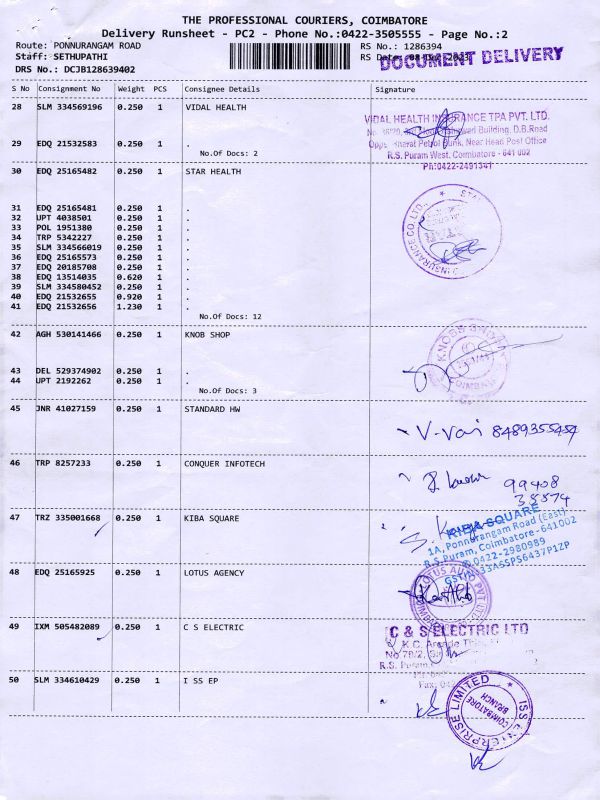 THE PROFESSIONAL COURIERS, COIMBATORE
Delivery Runsheet - PC2 - Phone No.:0422-3505555 - Page No.:2
Route: PONNURANGAM ROAD RS No.: 1286394
Staff: SETHUPATHI RS Date:
DOCUMENT DELIVERY
DRS No.: DCJB128639402
S No Consignment No Weight PCS Consignee Details Signature
28 SLM 334569196 0.250 1 VIDAL HEALTH
VIDAL HEALTH INSURANCE TPA PVT. LTD.
Building, D.B.Road
Opp. Bharat Petrol Bunk, Near Head Post Office
R.S. Puram West, Coimbatore - 641 002
Ph:0422-2491341
29 EDQ 21532583 0.250 1 .
No.Of Docs: 2
30 EDQ 25165482 0.250 1 STAR HEALTH
STAR
INSURANCE CO. LTD.
31 EDQ 25165481 0.250 1 .
32 UPT 4038501 0.250 1 .
33 POL 1951380 0.250 1 .
34 TRP 5342227 0.250 1 .
35 SLM 334566019 0.250 1 .
36 EDQ 25165573 0.250 1 .
37 EDQ 20185708 0.250 1 .
38 EDQ 13514035 0.620 1 .
39 SLM 334580452 0.250 1 .
40 EDQ 21532655 0.920 1 .
41 EDQ 21532656 1.230 1 .
No.Of Docs: 12
42 AGH 530141466 0.250 1 KNOB SHOP
KNOBS SHOP
43 DEL 529374902 0.250 1 .
44 UPT 2192262 0.250 1 .
No.Of Docs: 3
45 JNR 41027159 0.250 1 STANDARD HW
8489355454
46 TRP 8257233 0.250 1 CONQUER INFOTECH
99408
35574
47 TRZ 335001668 0.250 1 KIBA SQUARE
KIBA SQUARE
1A, Ponnurangam Road (East)
R.S. Puram, Coimbatore - 641002
0422-2980989
GSTIN:33ASSPS6437P1ZP
48 EDQ 25165925 0.250 1 LOTUS AGENCY
LOTUS
49 IXM 505482089 0.250 1 C S ELECTRIC
C & S ELECTRIC LTD
K.C. Arcade
No 78/2,
R.S. Puram,
Fax: 042
50 SLM 334610429 0.250 1 I SS EP
ISS ENTERPRISE LIMITED
COIMBATORE
BRANCH